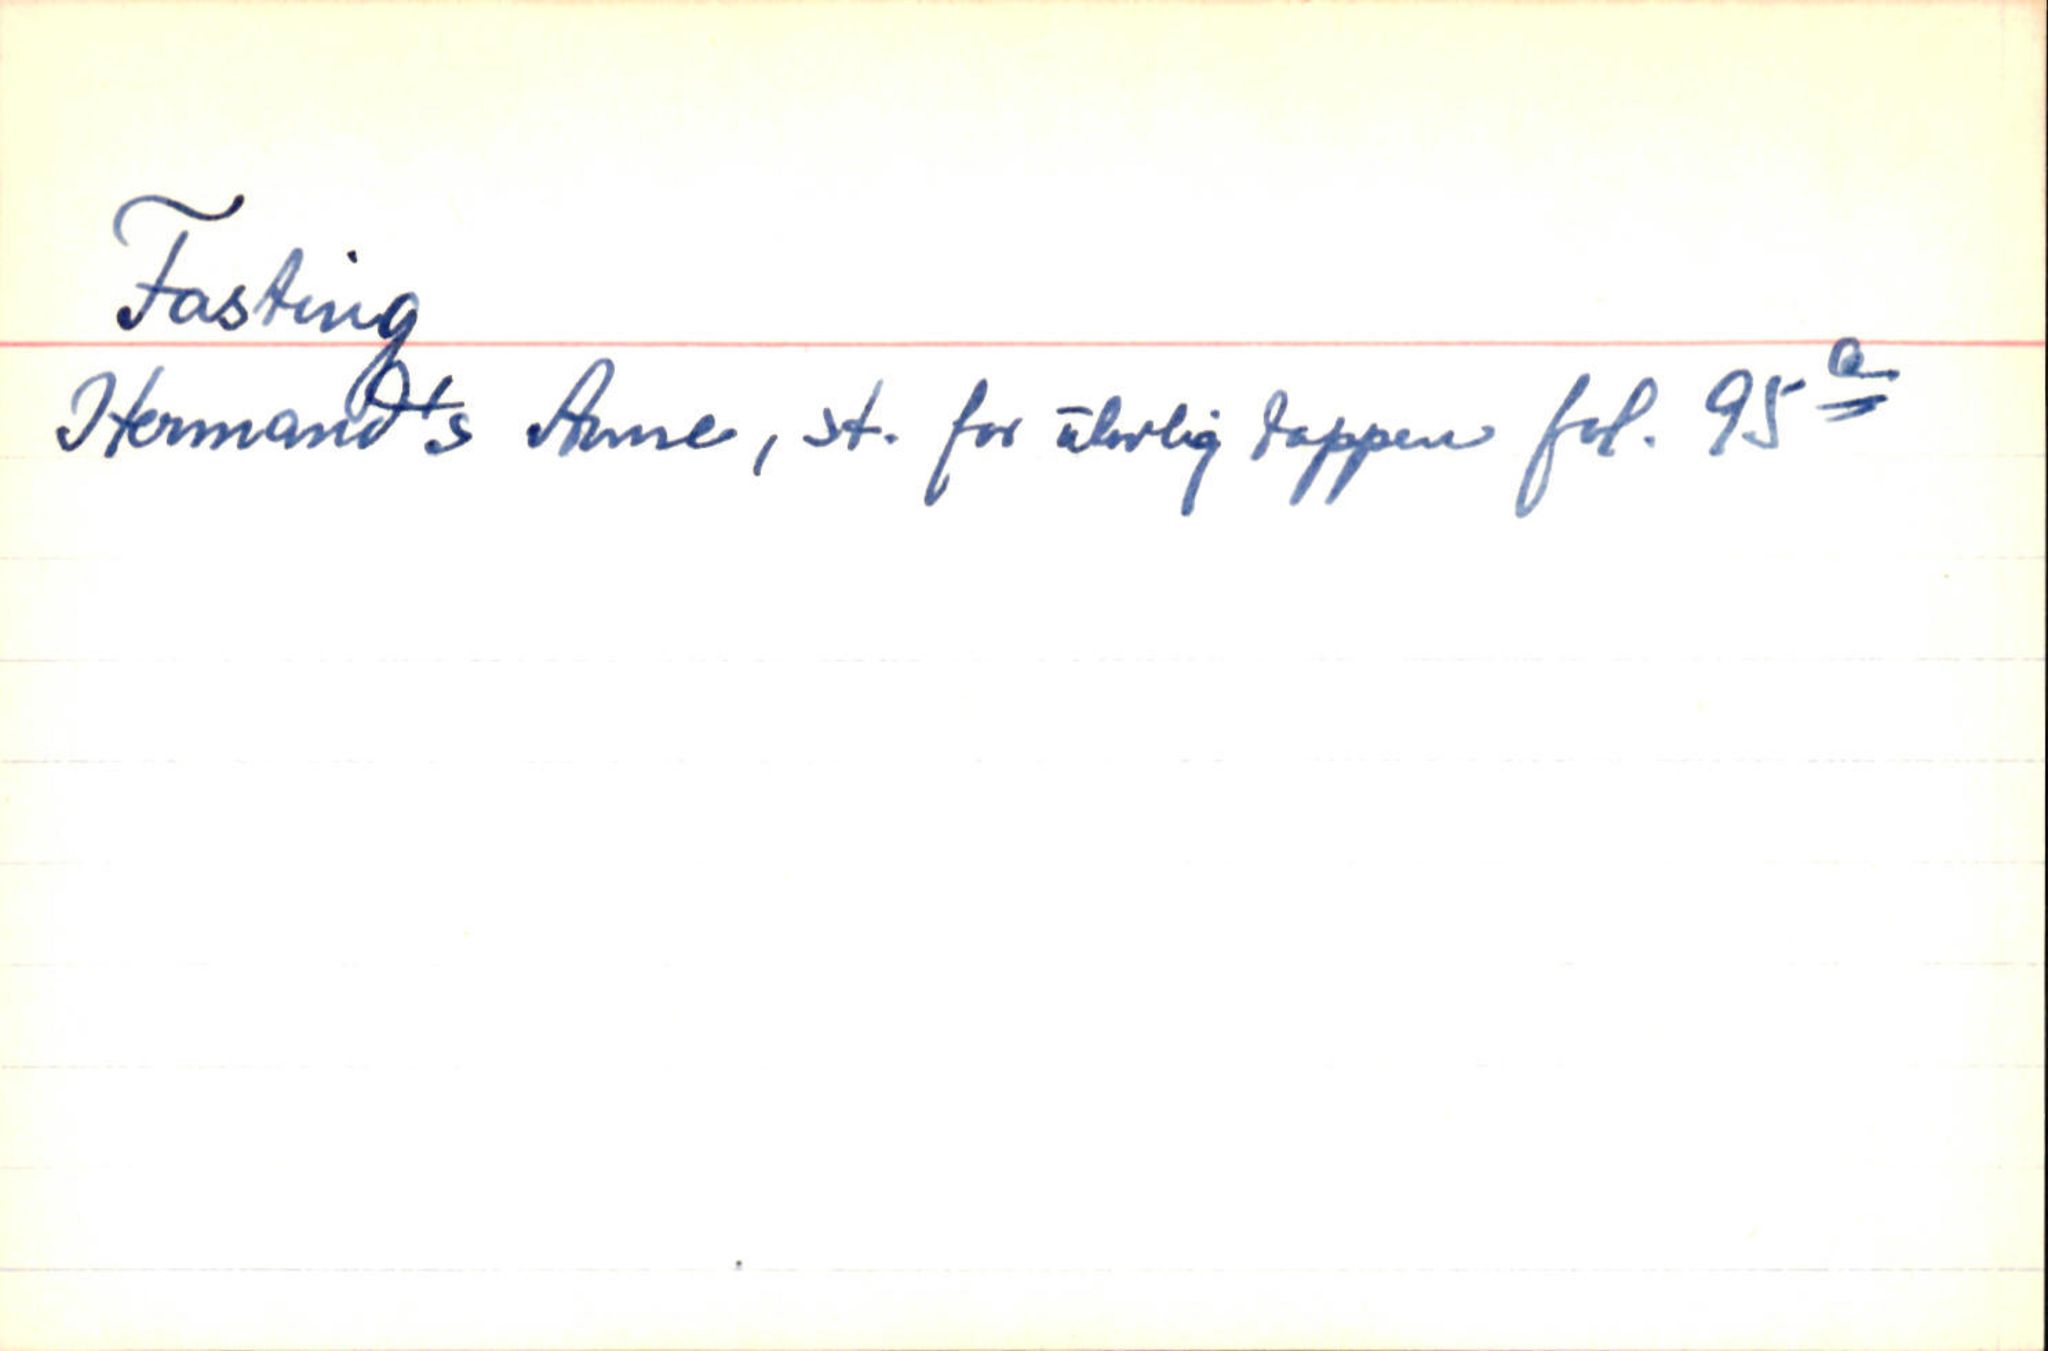 Fasting
Hermand's Anne, st. for ulovlig tappen fol. 95a